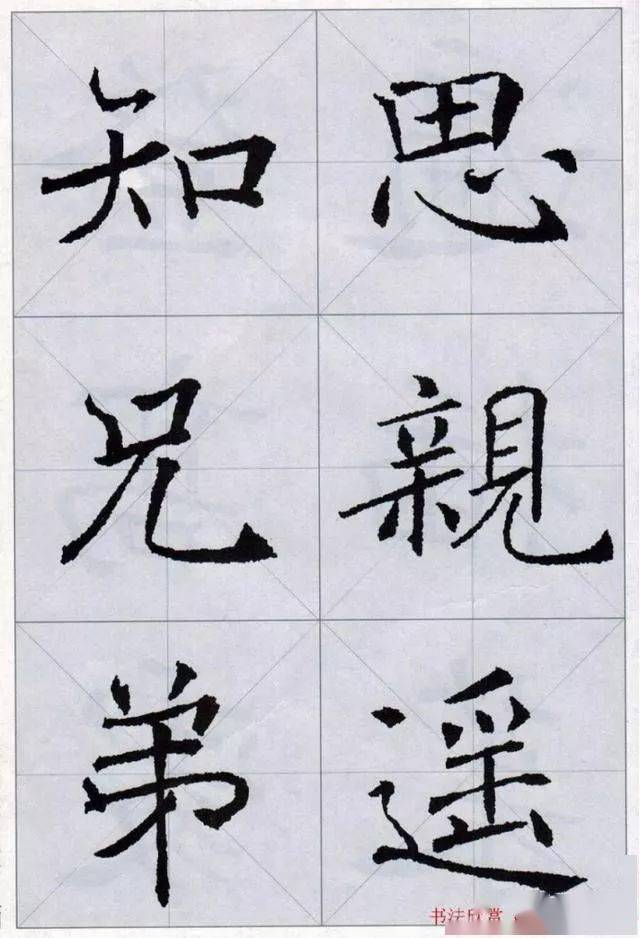 思親遥
知兄弟
书法欣赏